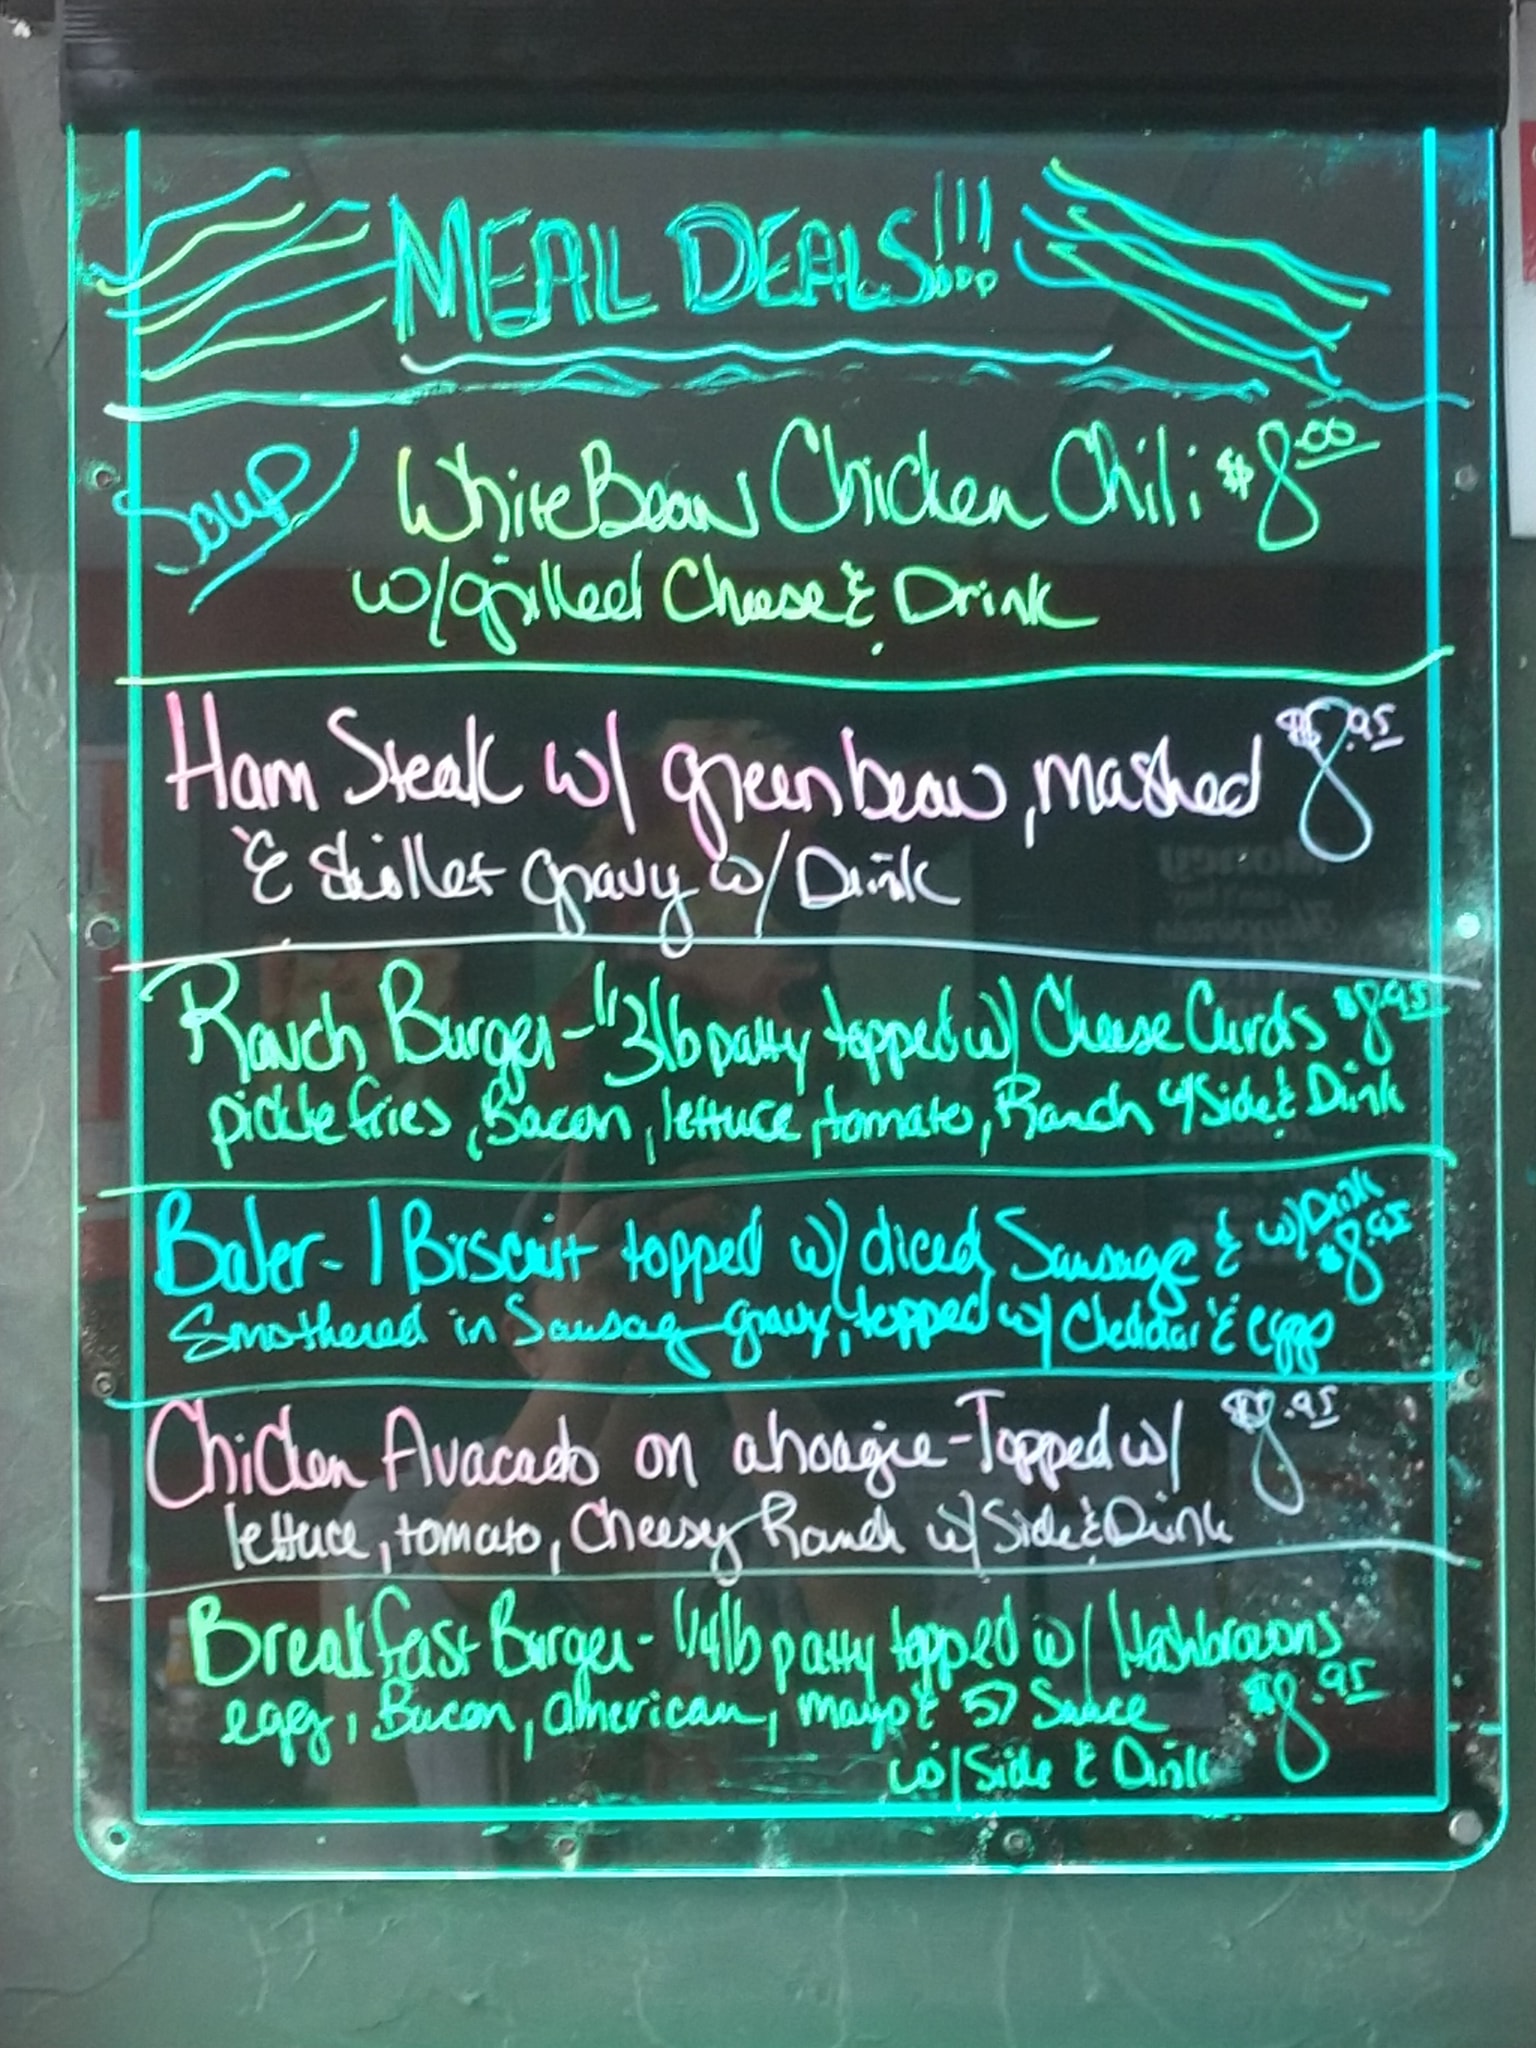 MEAL DEALS!!!
Soup White Bean Chicken Chili $8.00
w/grilled Cheese & Drink
Ham Steak w/ green bean, mashed $8.95
& Skillet gravy w/ Drink
Ranch Burger - 1/3 lb patty topped w/ Cheese Curds $8.95
pickle fries, Bacon, lettuce, tomato, Ranch w/ Side & Drink
Baler - 1 Biscuit topped w/ diced Sausage & w/ Drink $8.95
Smothered in Sausag gravy, topped w/ Cheddar & eggs
Chicken Avacado on a hoagie - Topped w/ $8.95
lettuce, tomato, Cheesy Ranch w/ Side & Drink
Breakfast Burger - 1/4 lb patty topped w/ Hashbrowns
egg, Bacon, american, mayo & 57 Sauce $8.95
w/ Side & Drink